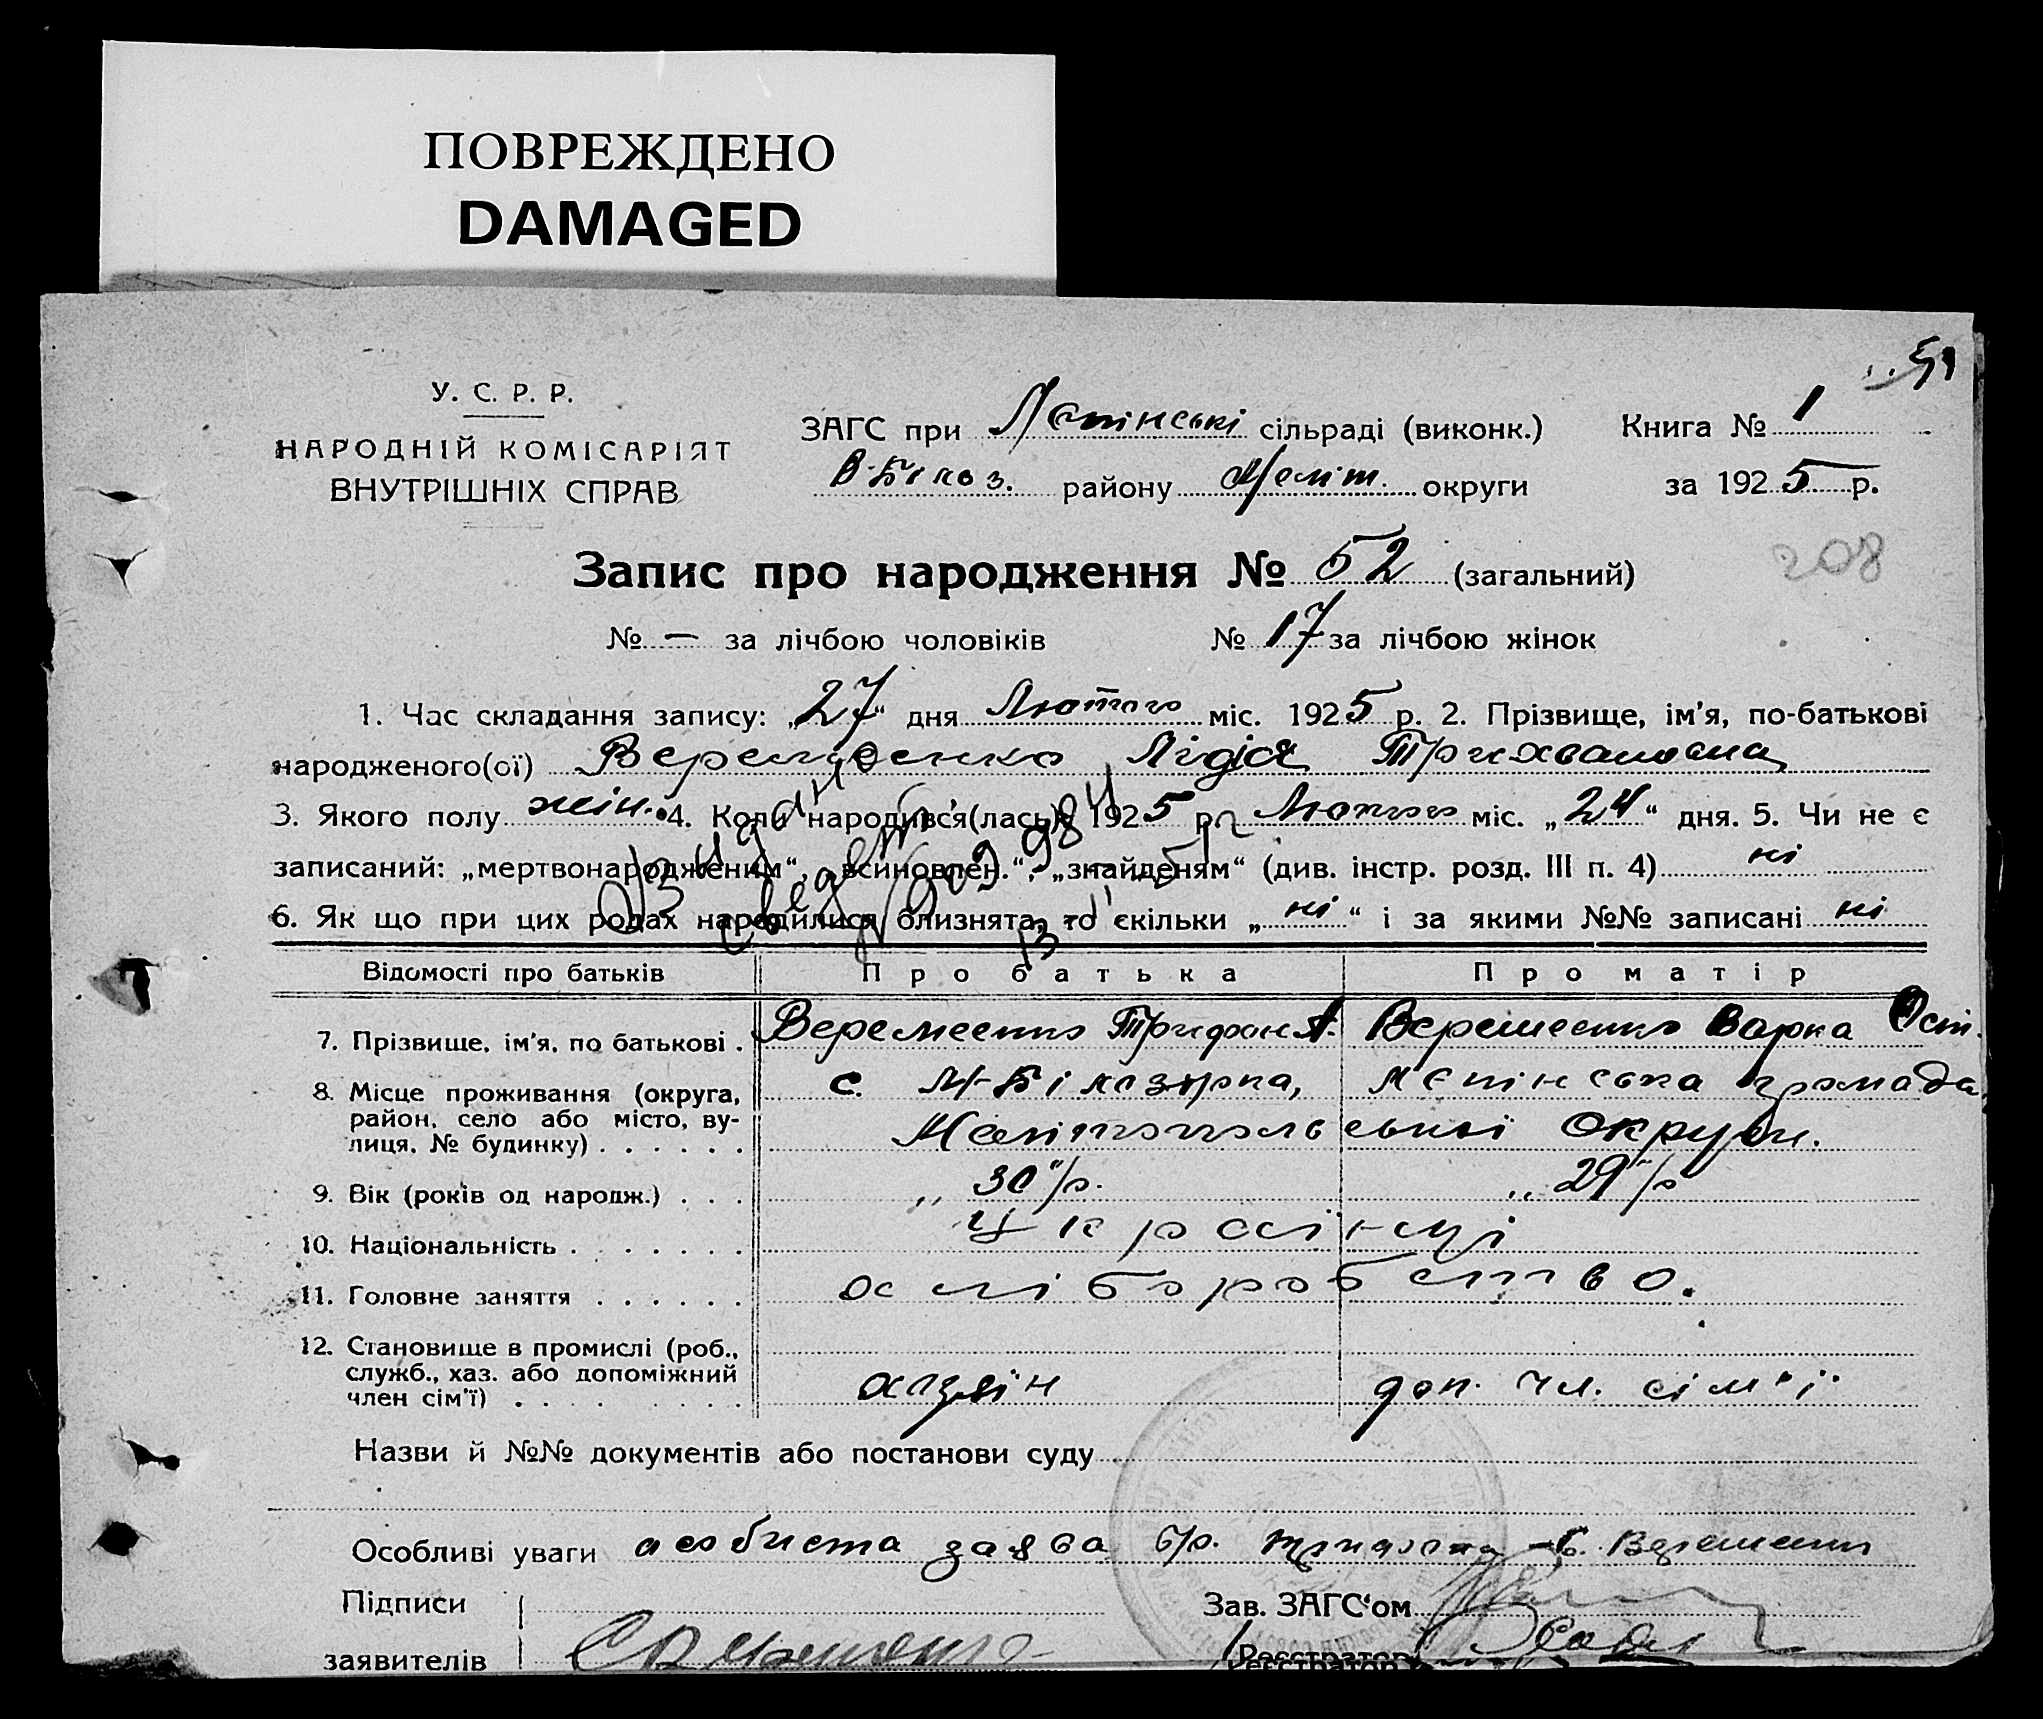 ПОВРЕЖДЕНО
DAMAGED
51
У. С. Р. Р.
НАРОДНІЙ КОМІСАРІЯТ
ВНУТРІШНІХ СПРАВ
ЗАГС при сільраді (виконк.) Книга № 1
В-Білоз. району Меліт. округи за 1925 р.
Запис про народження № 52 (загальний)
208
№ — за лічбою чоловіків № 17 за лічбою жінок
1. Час складання запису: „27“ дня Лютого міс. 1925 р. 2. Прізвище, ім'я, по-батькові
народженого(ої) Веремеенко Лідія
3. Якого полу жін. 4. Коли народився(лась) 1925 р. Лютого міс. „24“ дня. 5. Чи не є
записаний: „мертвонародженим“, „всиновлен.“, „знайденям“ (див. інстр. розд. III п. 4) ні
6. Як що при цих родах народилися близнята, то скільки „ні“ і за якими №№ записані ні
Відомості про батьків Про батька Про матір
7. Прізвище, ім'я, по батькові . Веремеенко Трифон А. Веремеенко Варка Ост.
8. Місце проживання (округа,
район, село або місто, ву-
лиця, № будинку) . . . . . .
с. М-Білозірка, громада
Мелітопольської Округи.
9. Вік (років од народж.) . . . „30“ р. „29“ р
10. Національність . . . . . . . Українці
11. Головне заняття . . . . . . хліборобство.
12. Становище в промислі (роб.,
служб., хаз. або допоміжний
член сім'ї) . . . . . . . .
хазяін доп. чл. сім'ї.
Назви й №№ документів або постанови суду
Особливі уваги особиста заява гр.
Підписи
заявителів
Зав. ЗАГС'ом
Реєстратор